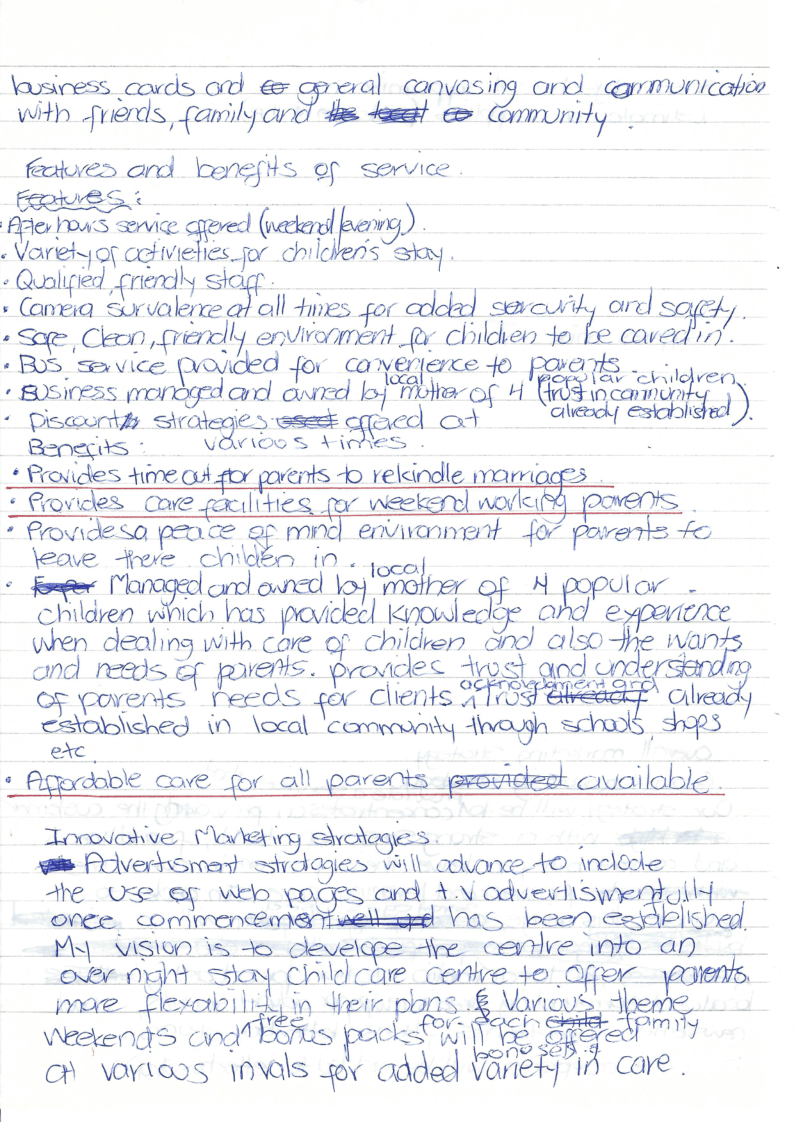 business cards and general canvasing and communication
with friends, family and community.
Features and benefits of service.
Features:
• After hours service offered (weekend/evening).
• Variety of activieties for children's stay.
• Qualified, friendly staff.
• Camera survalence at all times for added sercurity and safety.
• Safe, Clean, friendly environment for children to be cared in.
• Bus service provided for convenience to parents.
• Business managed and owned by local mother of 4 popular children
(trust in community already established).
• Discount strategies offered at
various times.
Benefits:
• Provides time out for parents to rekindle marriages
• Provides care facilities for weekend working parents.
• Provides a peace of mind environment for parents to
leave there children in.
• Managed and owned by local mother of 4 popular
children which has provided knowledge and experience
when dealing with care of children and also the wants
and needs of parents. provides trust and understanding
of parents needs for clients. acknowledgment and Trust already
established in local community through schools, shops
etc.
• Affordable care for all parents available.
Innovative Marketing stratagies.
Advertisment stratagies will advance to include
the use of web pages and t.v advertisment
once commencement has been established.
My vision is to develope the centre into an
over night stay childcare centre to offer parents
more flexability in their plans. Various theme
weekends and free bonus packs for each family will be offered
at various invals for added variety in care.